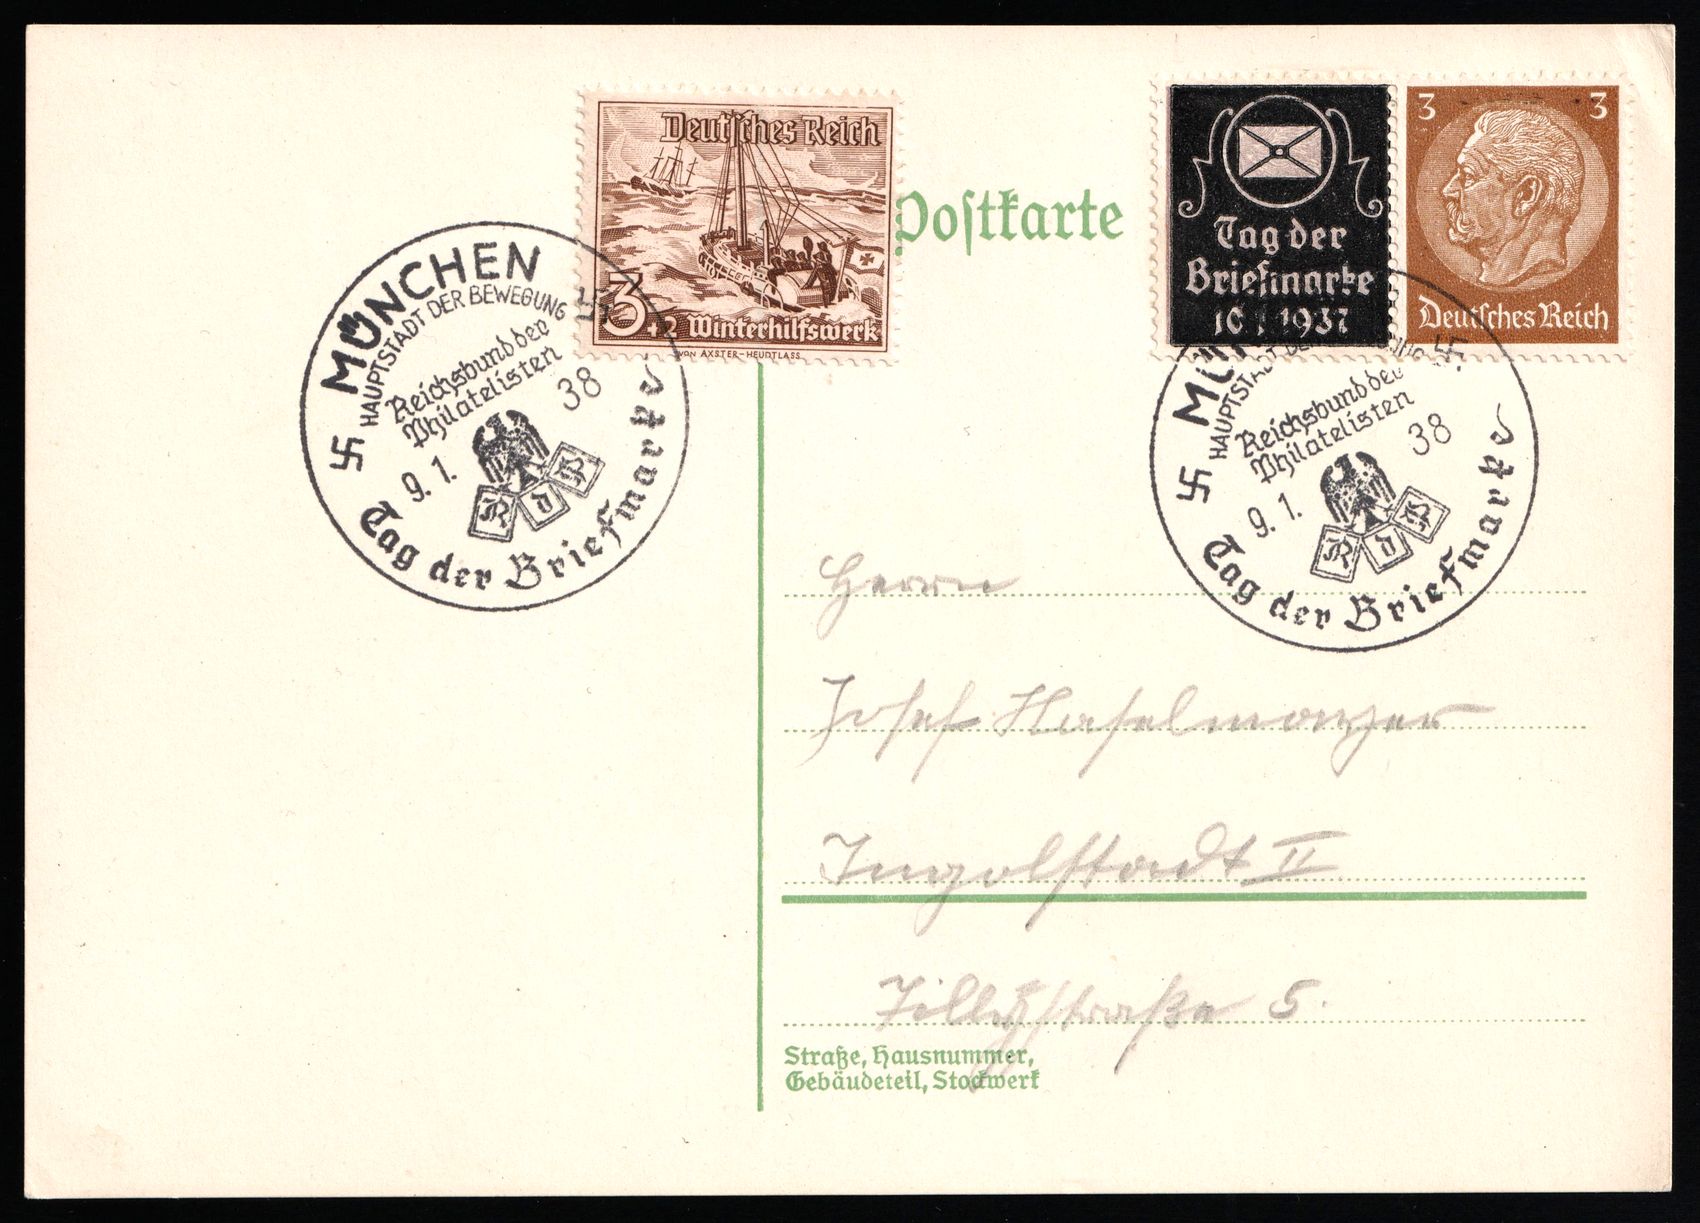 Deutsches Reich
3+2 Winterhilfswerk
VON AXSTER-HEUDTLASS
Postkarte
Tag der
Briefmarke
1937
3 3
Deutsches Reich
MÜNCHEN
HAUPTSTADT DER BEWEGUNG
Reichsbund der
Philatelisten
9. 1. 38
R d P
Tag der Briefmarke
HAUPTSTADT
Reichsbund der
Philatelisten
9. 1. 38
R d P
Tag der Briefmarke
Herrn
Josef Haselmayer
Ingolstadt II
Tillystraße 5.
Straße, Hausnummer,
Gebäudeteil, Stockwerk